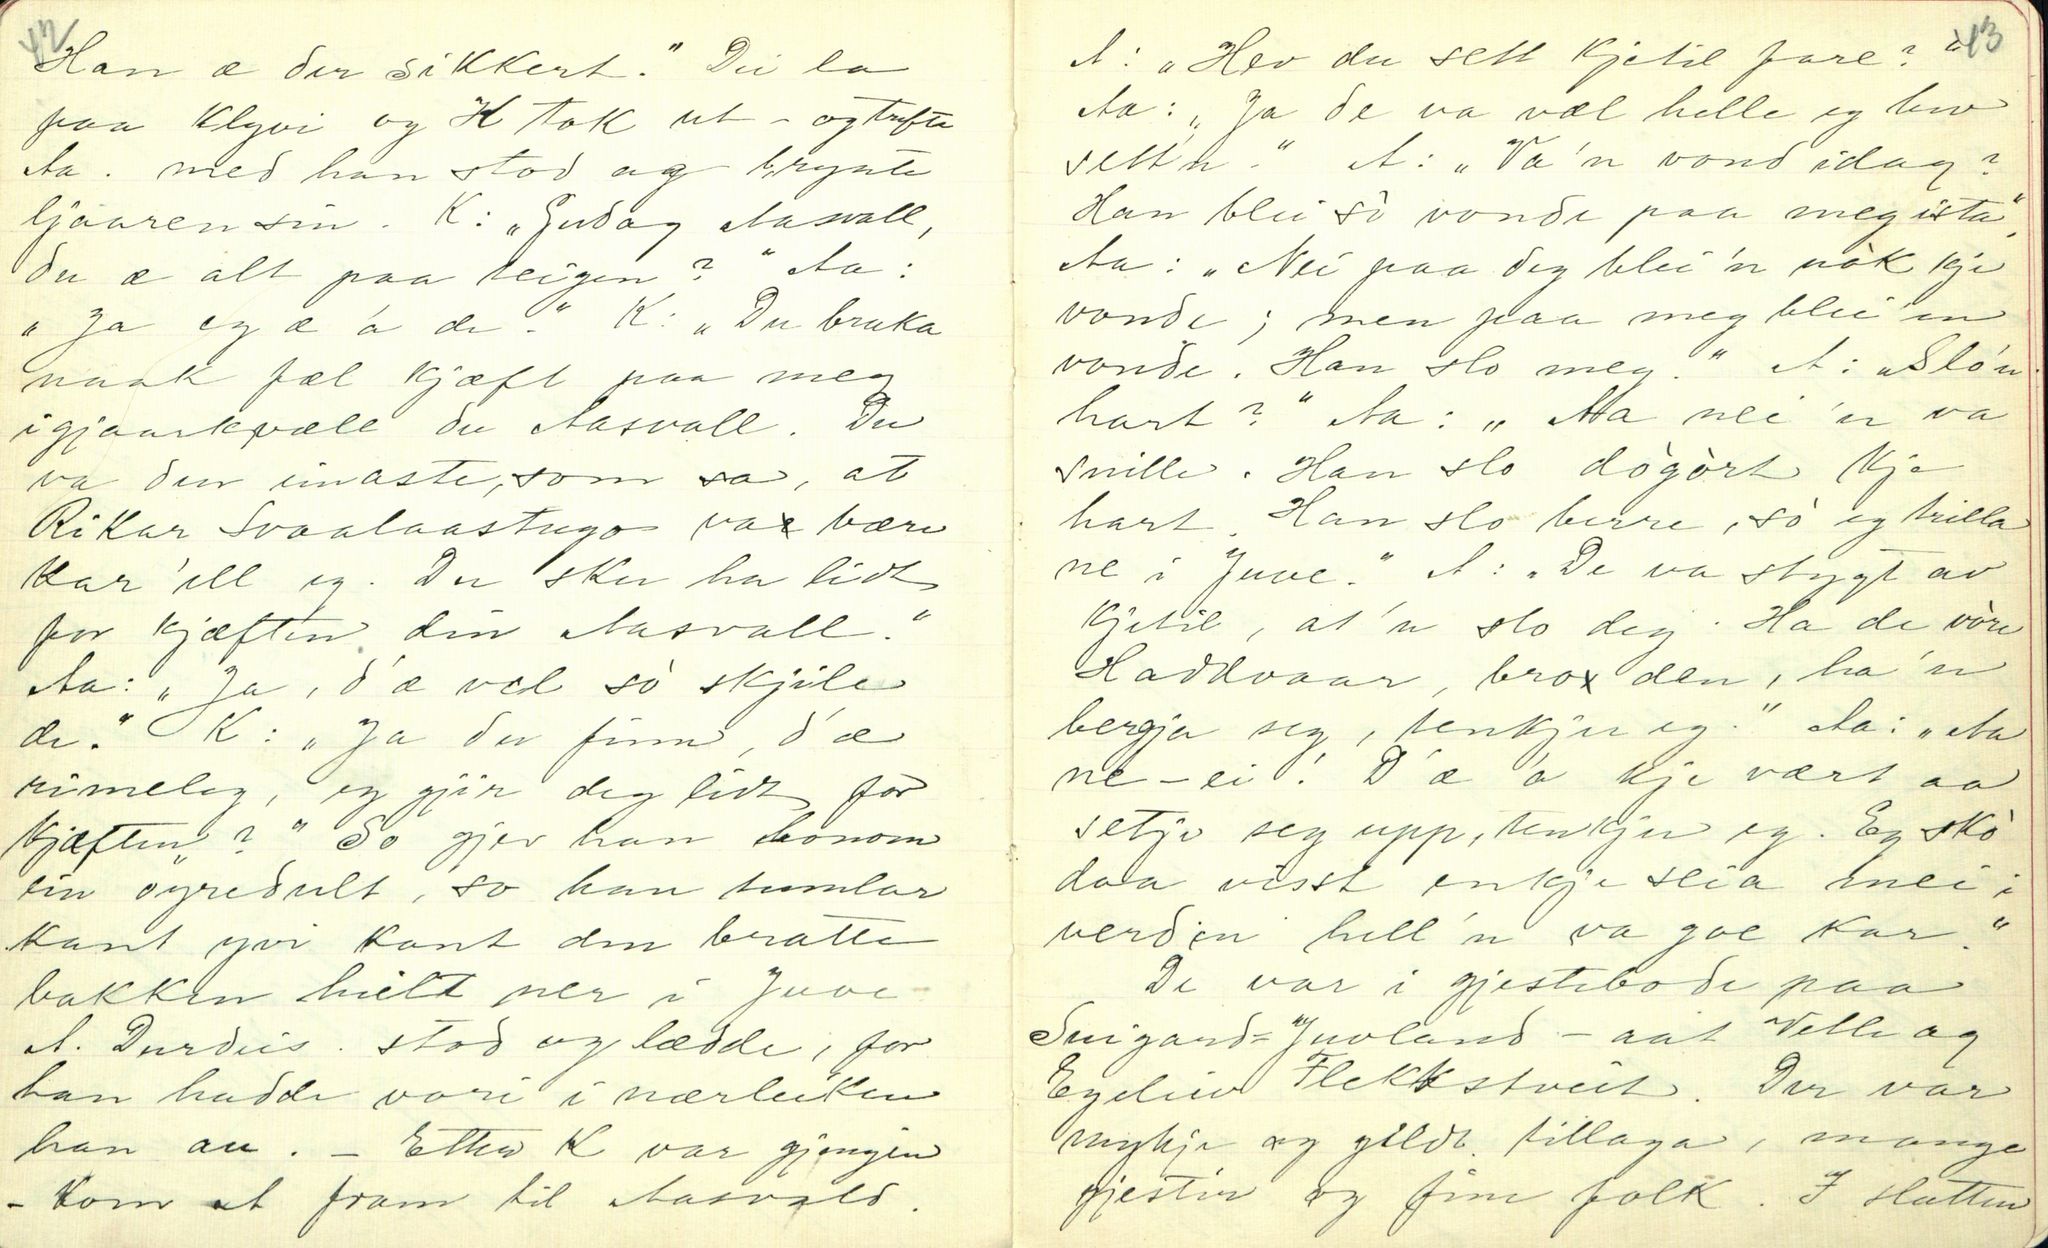 42
Han æ der sikkert." Dei la
paa Klyvi og K tok ut - og trefte
Aa. med han stod og brynte
ljaaren sin. K: „Gudag Aasvall,
du æ alt paa teigen?" Aa:
„Ja eg æ 'a de." K: „Du bruka
naak fæl kjæft paa meg
igjaarkvæle du Aasvall. Du
va den einaste, som sa, at
Rikar Svaalaastugo va bære
kar 'ell eg. Du sku ha lidt
for kjæften din Aasvall."
Aa: „Ja, d'æ vel sò skjile
de." K: „Ja du finn, d'æ
rimeleg, eg gjir deg lidt for
kjæften?" So gjev han honom
ein øyredult, so han tumlar
kant yvi kant den bratte
bakken heilt ner i Juve
A. Durdeis. stod og lædde, for
han hadde vori i nærleiken
han au. - Etter K var gjengjen
- kom A fram til Aasvald.
43
A: „Hev du sett Kjetil fare?"
Aa: „Ja de va væl helle eg hev
sett'n." A: „Va'n vond idag?
Han blei sò vonde paa meg ista".
Aa: „Nei paa deg blei'n nòk kje
vonde; men paa meg blei'en
vonde. Han slo meg." A: „Slo'n
hart?" Aa: „Aa nei 'n va
snille. Han slo dògòrt kje
hart. Han slo berre, sò eg trilla
ne i Juve." A: „De va stygt av
Kjetil, at'n slo deg. Ha de vòre
Haddvaar, bro den, ha'n
bergja seg, tenkjer eg." Aa: „Aa
ne-ei! D'æ 'a kje vært aa
setje seg upp, tenkjer eg. Eg skò
daa visst enkje slia mei i
verden hell'n va goe kar."
De var i gjestebode paa
Suigard-Juvland - aat Velle og
Egeleiv Flekkstveit. Der var
mykje og gildt tillaga, mange
gjestir og fine folk. I slutten